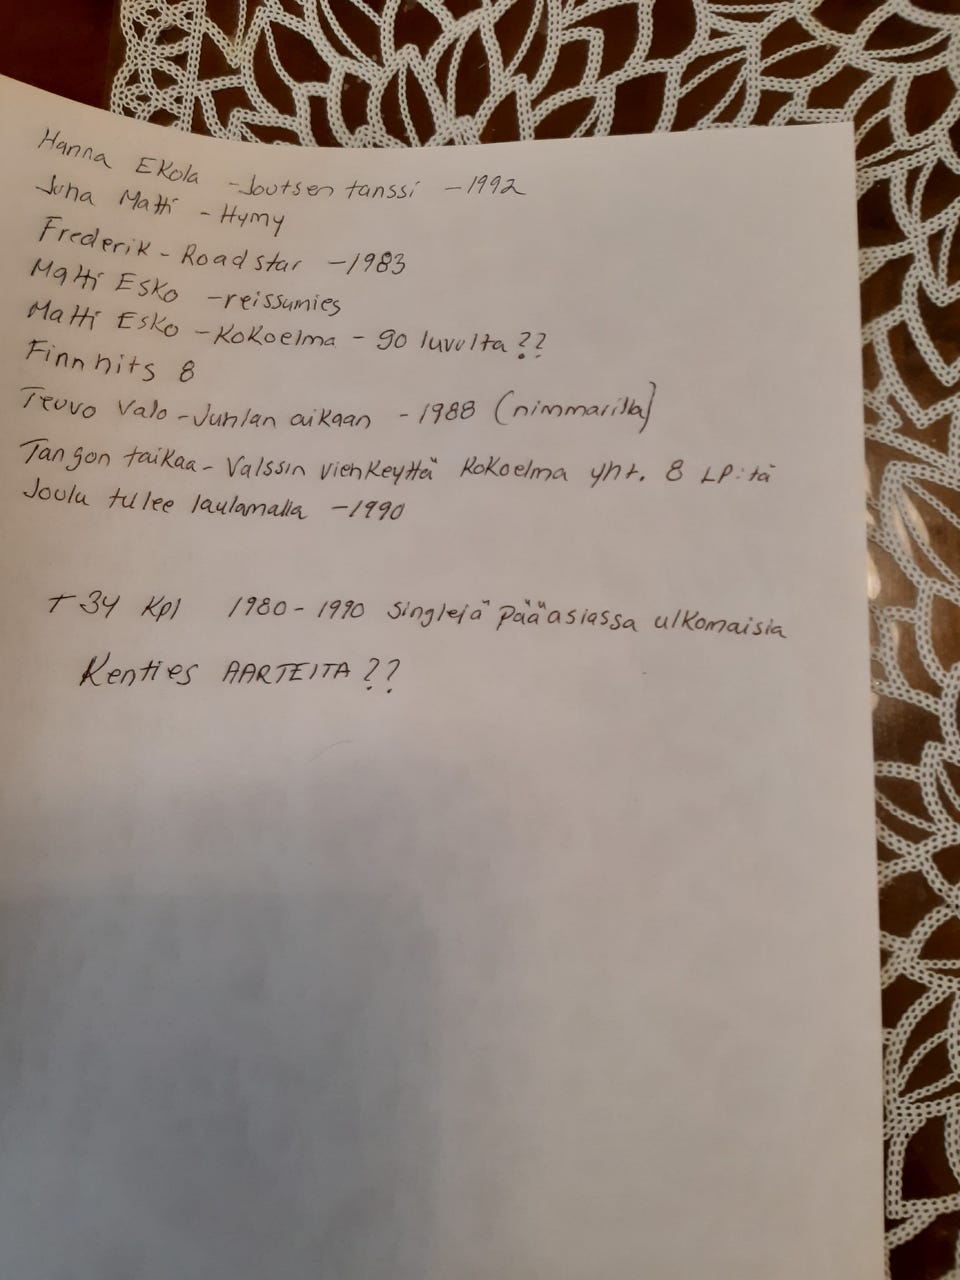 Hanna Ekola - Joutsen tanssi - 1992
Juha Matti - Hymy
Frederik - Roadstar - 1983
Matti Esko - reissumies
Matti Esko - Kokoelma - 90 luvulta??
Finnhits 8
Teuvo Valo - Juhlan aikaan - 1988 (nimmarilla)
Tangon taikaa - Valssin viehkeyttä Kokoelma yht. 8 LP:tä
Joulu tulee laulamalla - 1990
+ 34 Kpl 1980 - 1990 singlejä pääasiassa ulkomaisia
Kenties AARTEITA??